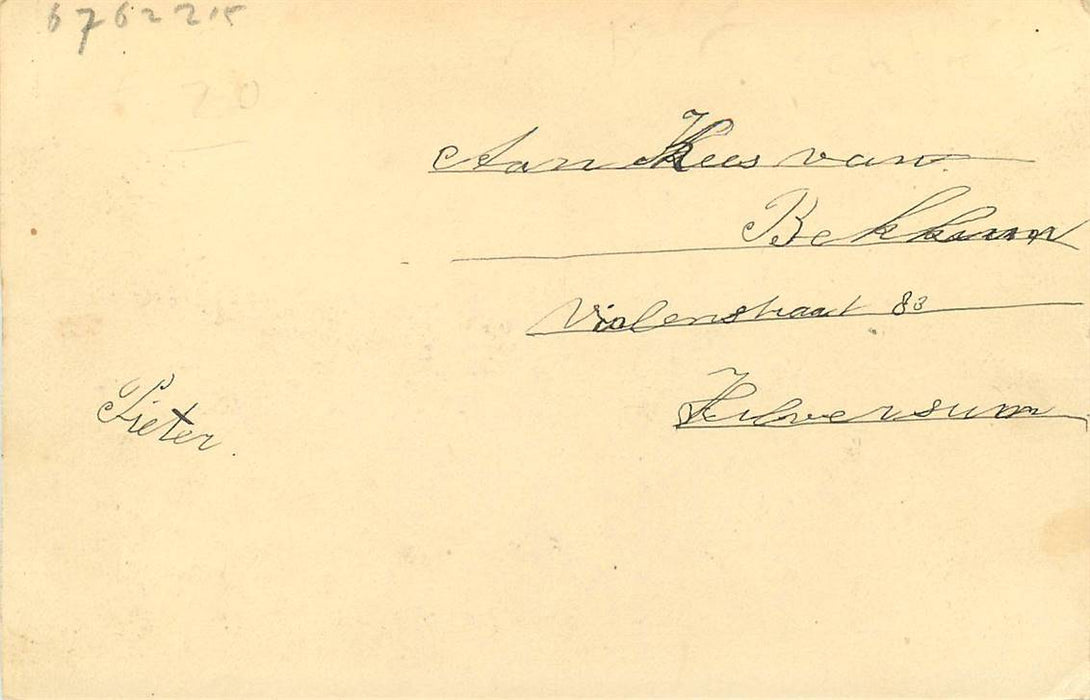 6762215
20
Aan Kees van
Bekkum
Violenstraat 83
Hilversum
Pieter.